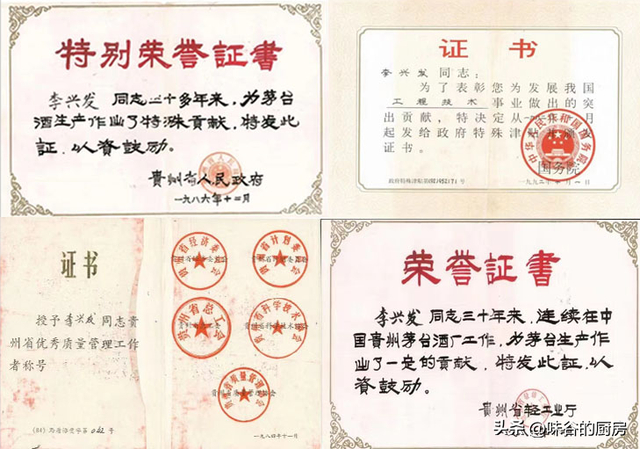 特别荣誉証書
李兴发 同志三十多年来，为茅台
酒生产作出了特殊贡献，特发此
证，以资鼓励。
贵州省人民政府
一九八六年十二月
证书
李兴发同志：
为了表彰您为发展我国
工程技术 事业做出的突
出贡献，特决定从一
月
起发给政府特殊津
证书。
中华人民共和国国务院
国务院
证书
授予李兴发同志贵
州省优秀质量管理工作
者称号
贵州省经济委员会
贵州省计划委员会
贵州省总工会
贵州省科学技术
贵州省质量管理协会
一九八四年十一月
荣誉証書
李兴发 同志三十年来，连续在中
国贵州茅台酒厂工作，为茅台生产作
出了一定的贡献，特发此证，以
资鼓励。
贵州省轻工业厅
头条 @味谷的厨房